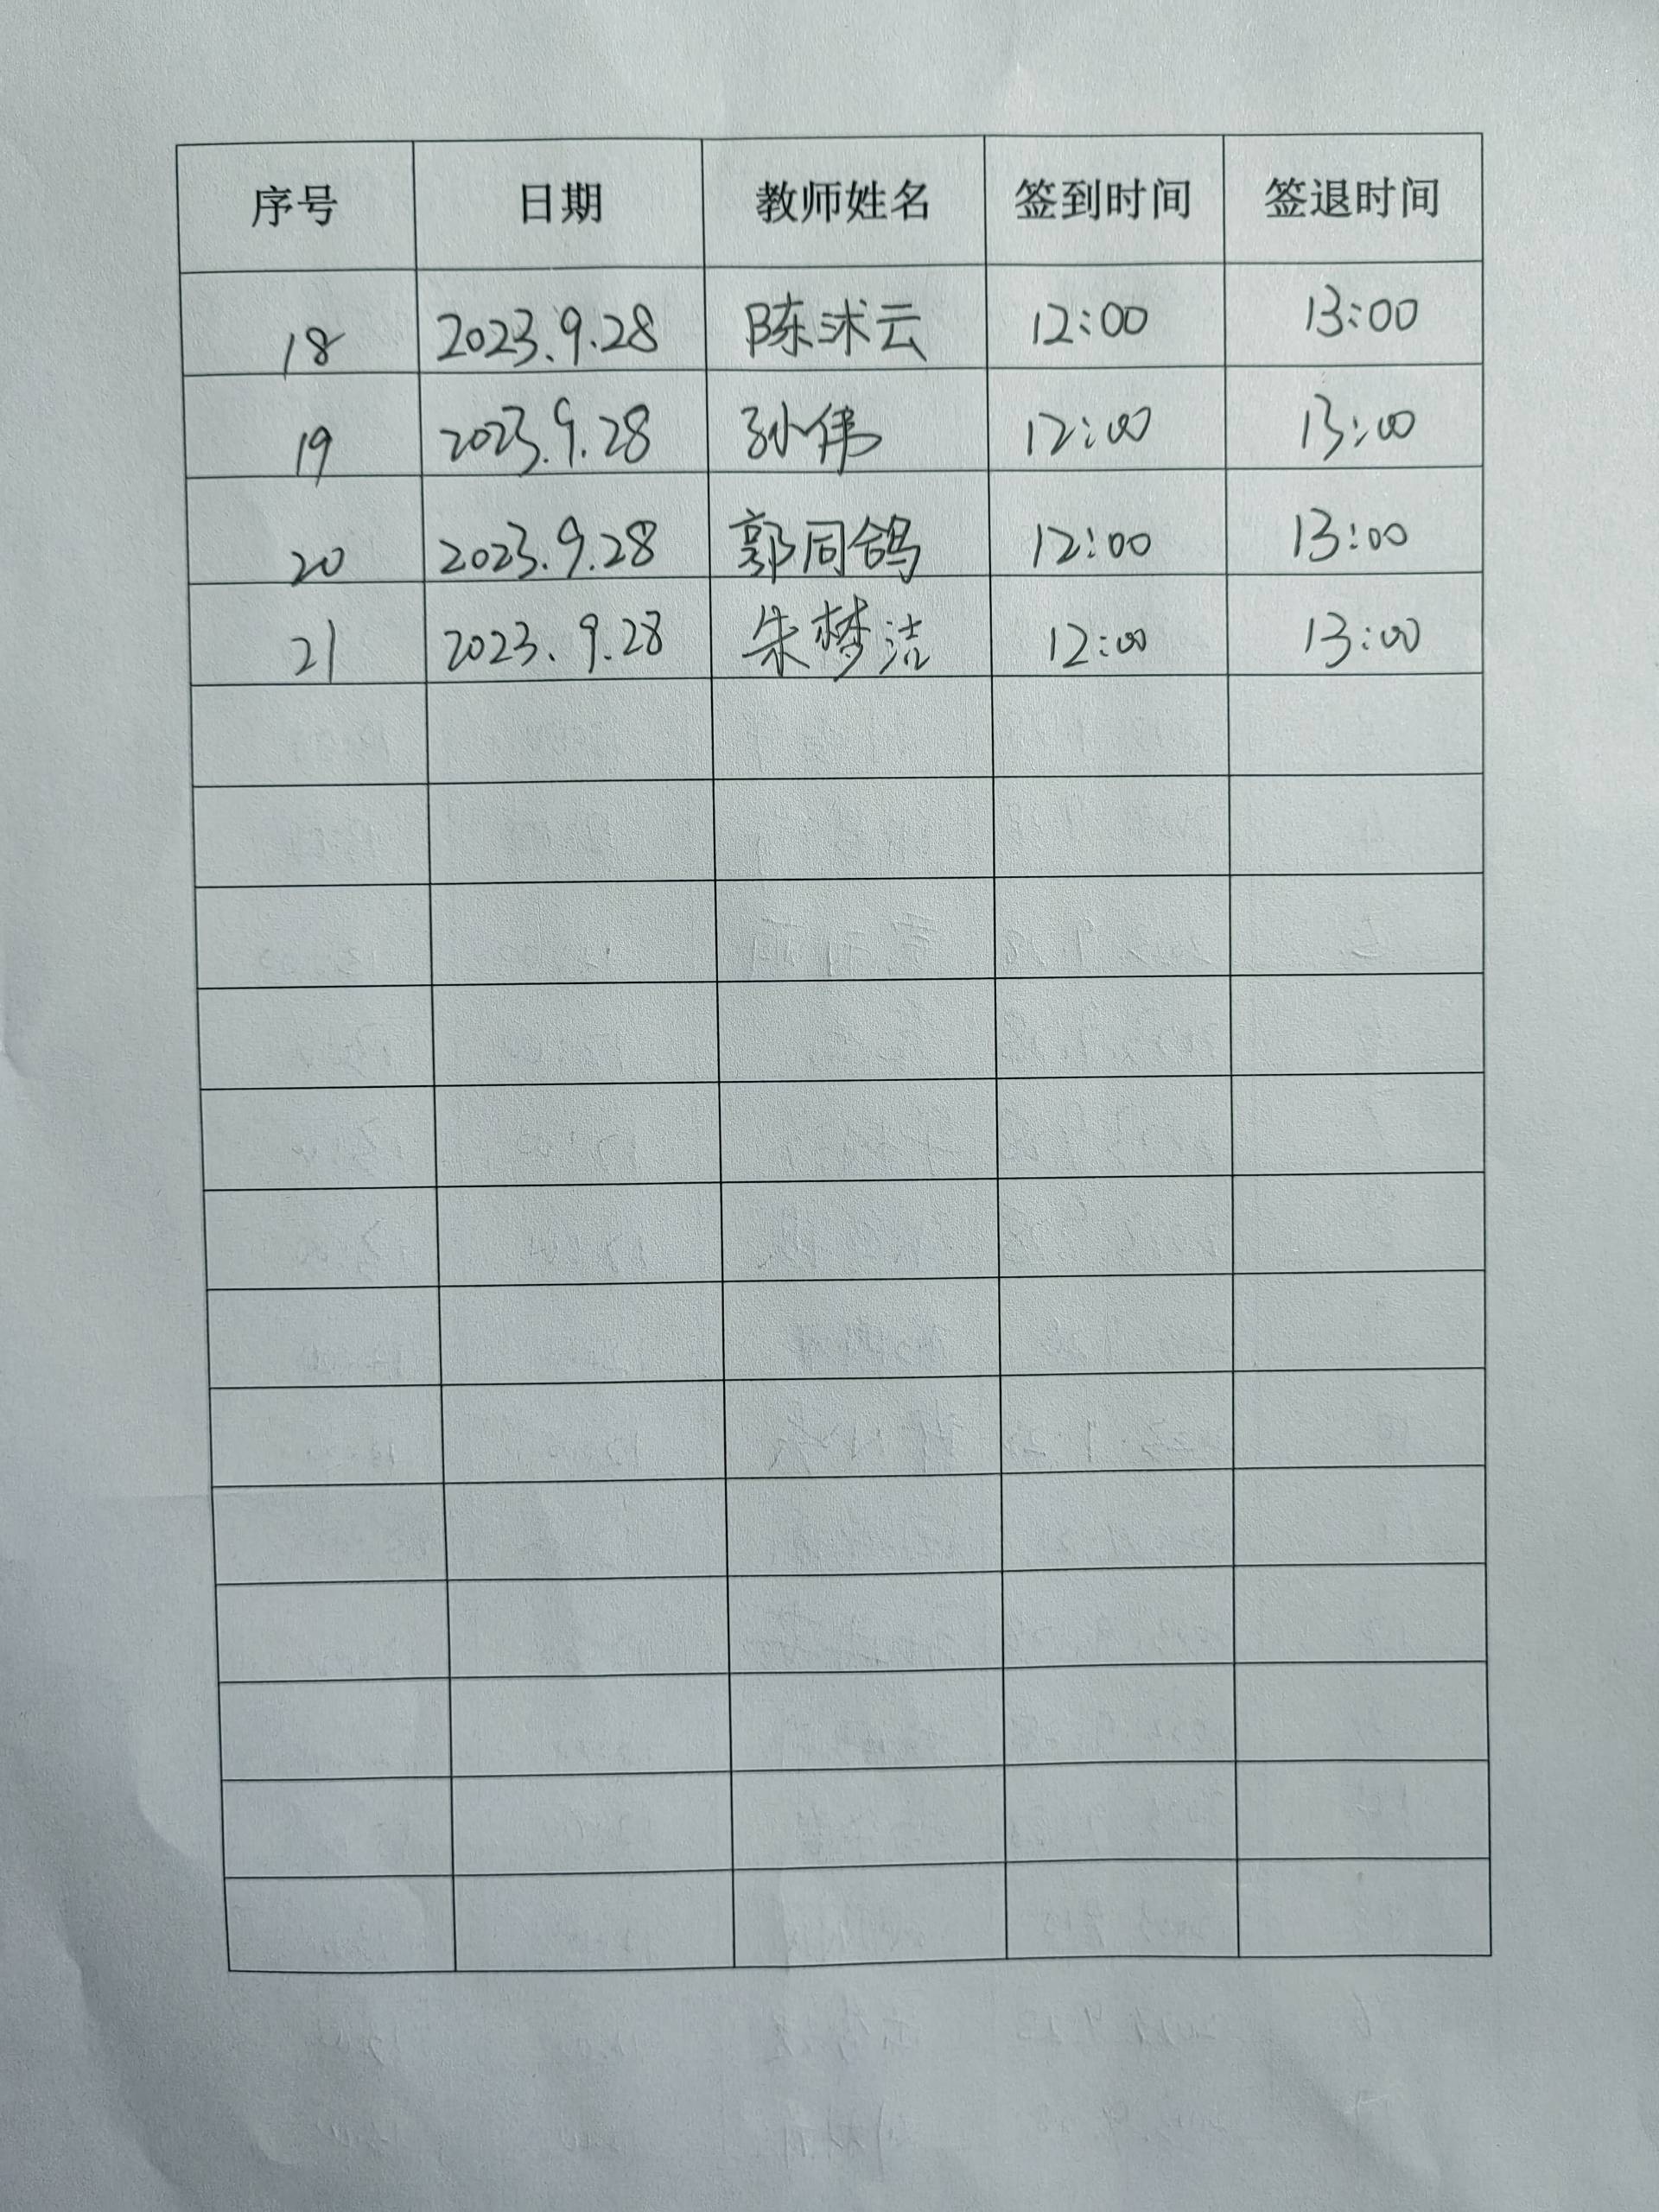 序号 日期 教师姓名 签到时间 签退时间
18 2023.9.28 陈沭云 12:00 13:00
19 2023.9.28 孙伟 12:00 13:00
20 2023.9.28 郭同鸽 12:00 13:00
21 2023.9.28 朱梦洁 12:00 13:00